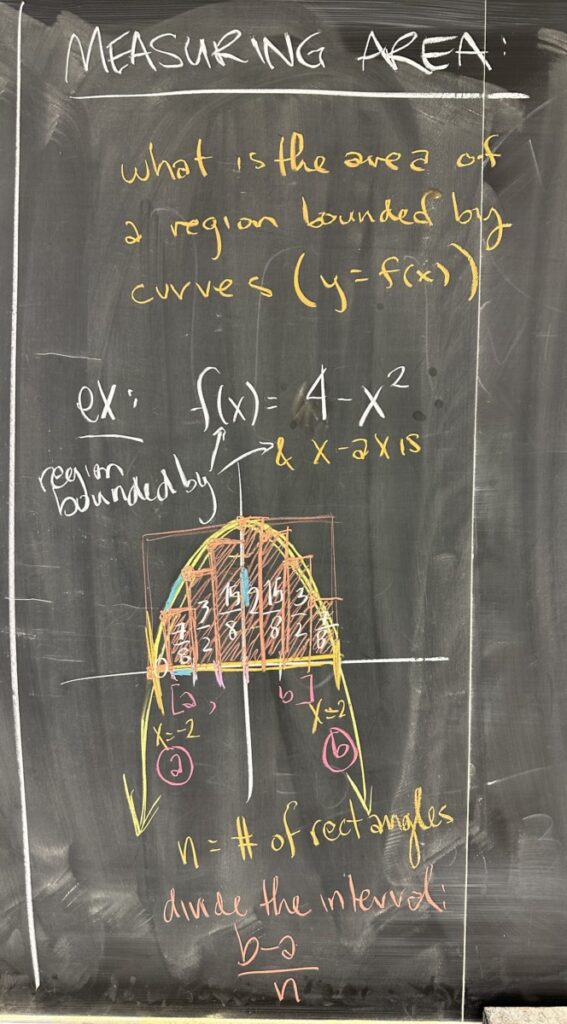 MEASURING AREA:
what is the area of
a region bounded by
curves (y=f(x))
ex: f(x)= 4-x²
& x-axis
region
bounded by
0 7/8 3/2 15/8 2 15/8 3/2 7/8
[a, b]
x=-2 x=2
a b
n = # of rectangles
divide the interval:
b-a
n